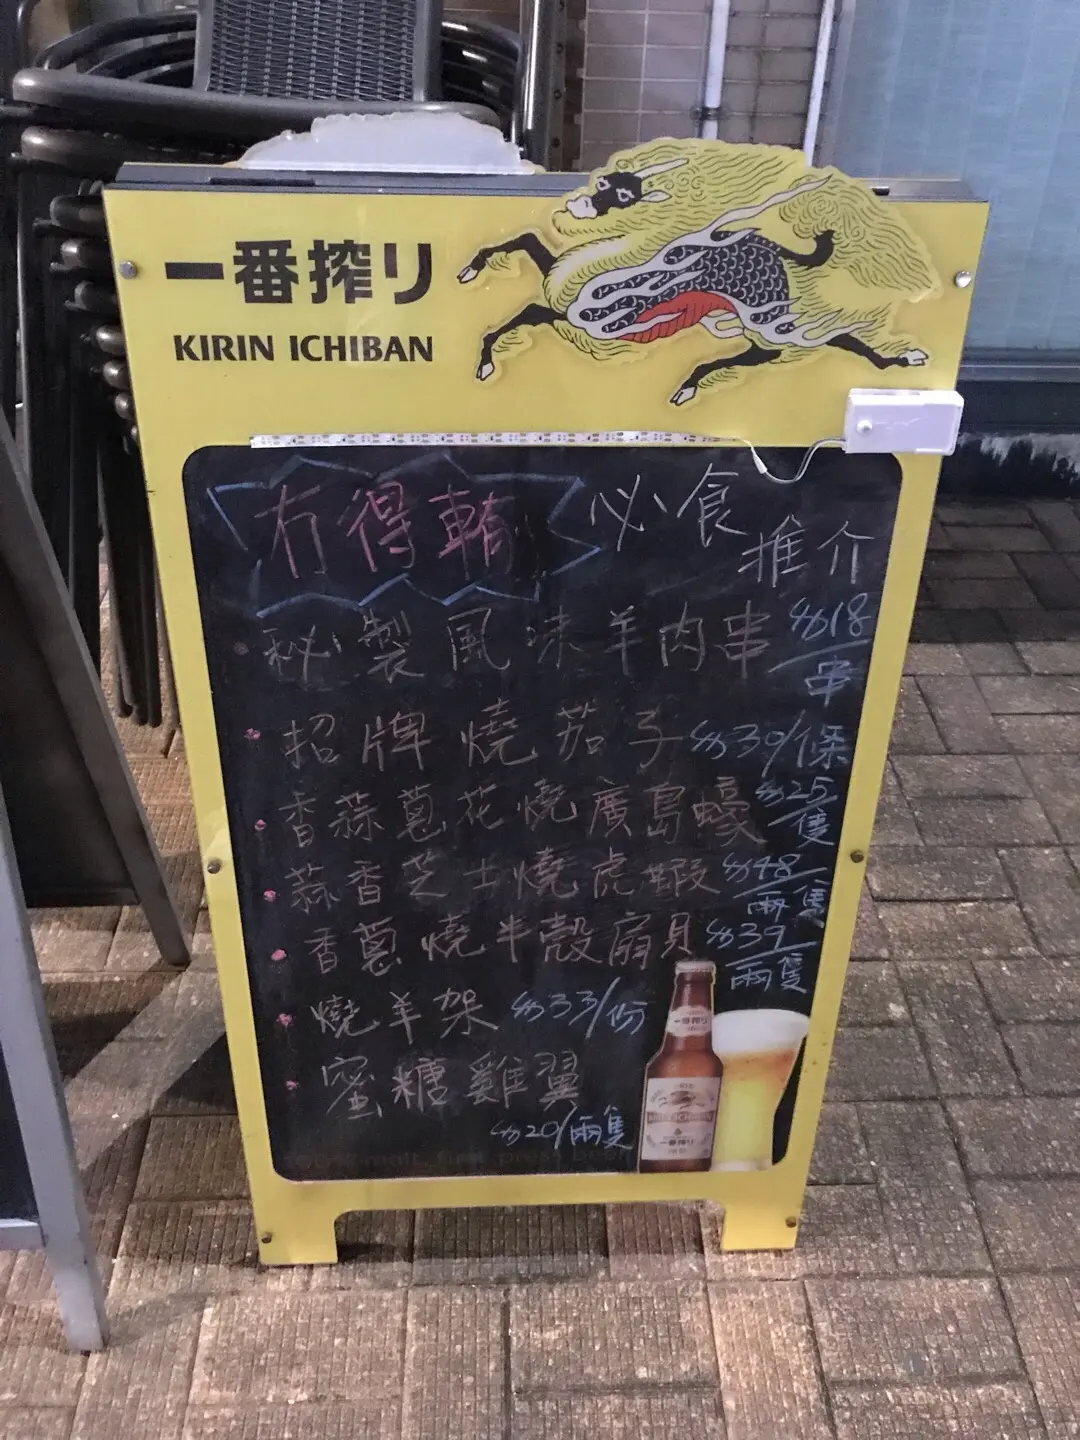 一番搾り
KIRIN ICHIBAN
冇得輸 必食
推介
秘製風味羊肉串 $18/串
招牌燒茄子 $39/條
香蒜蔥花燒廣島蠔 $25/隻
蒜香芝士燒虎蝦 $48/兩隻
香蔥燒半殼扇貝 $39/兩隻
燒羊架 $33/份
蜜糖雞翼
$20/兩隻
一番搾り
一番搾り